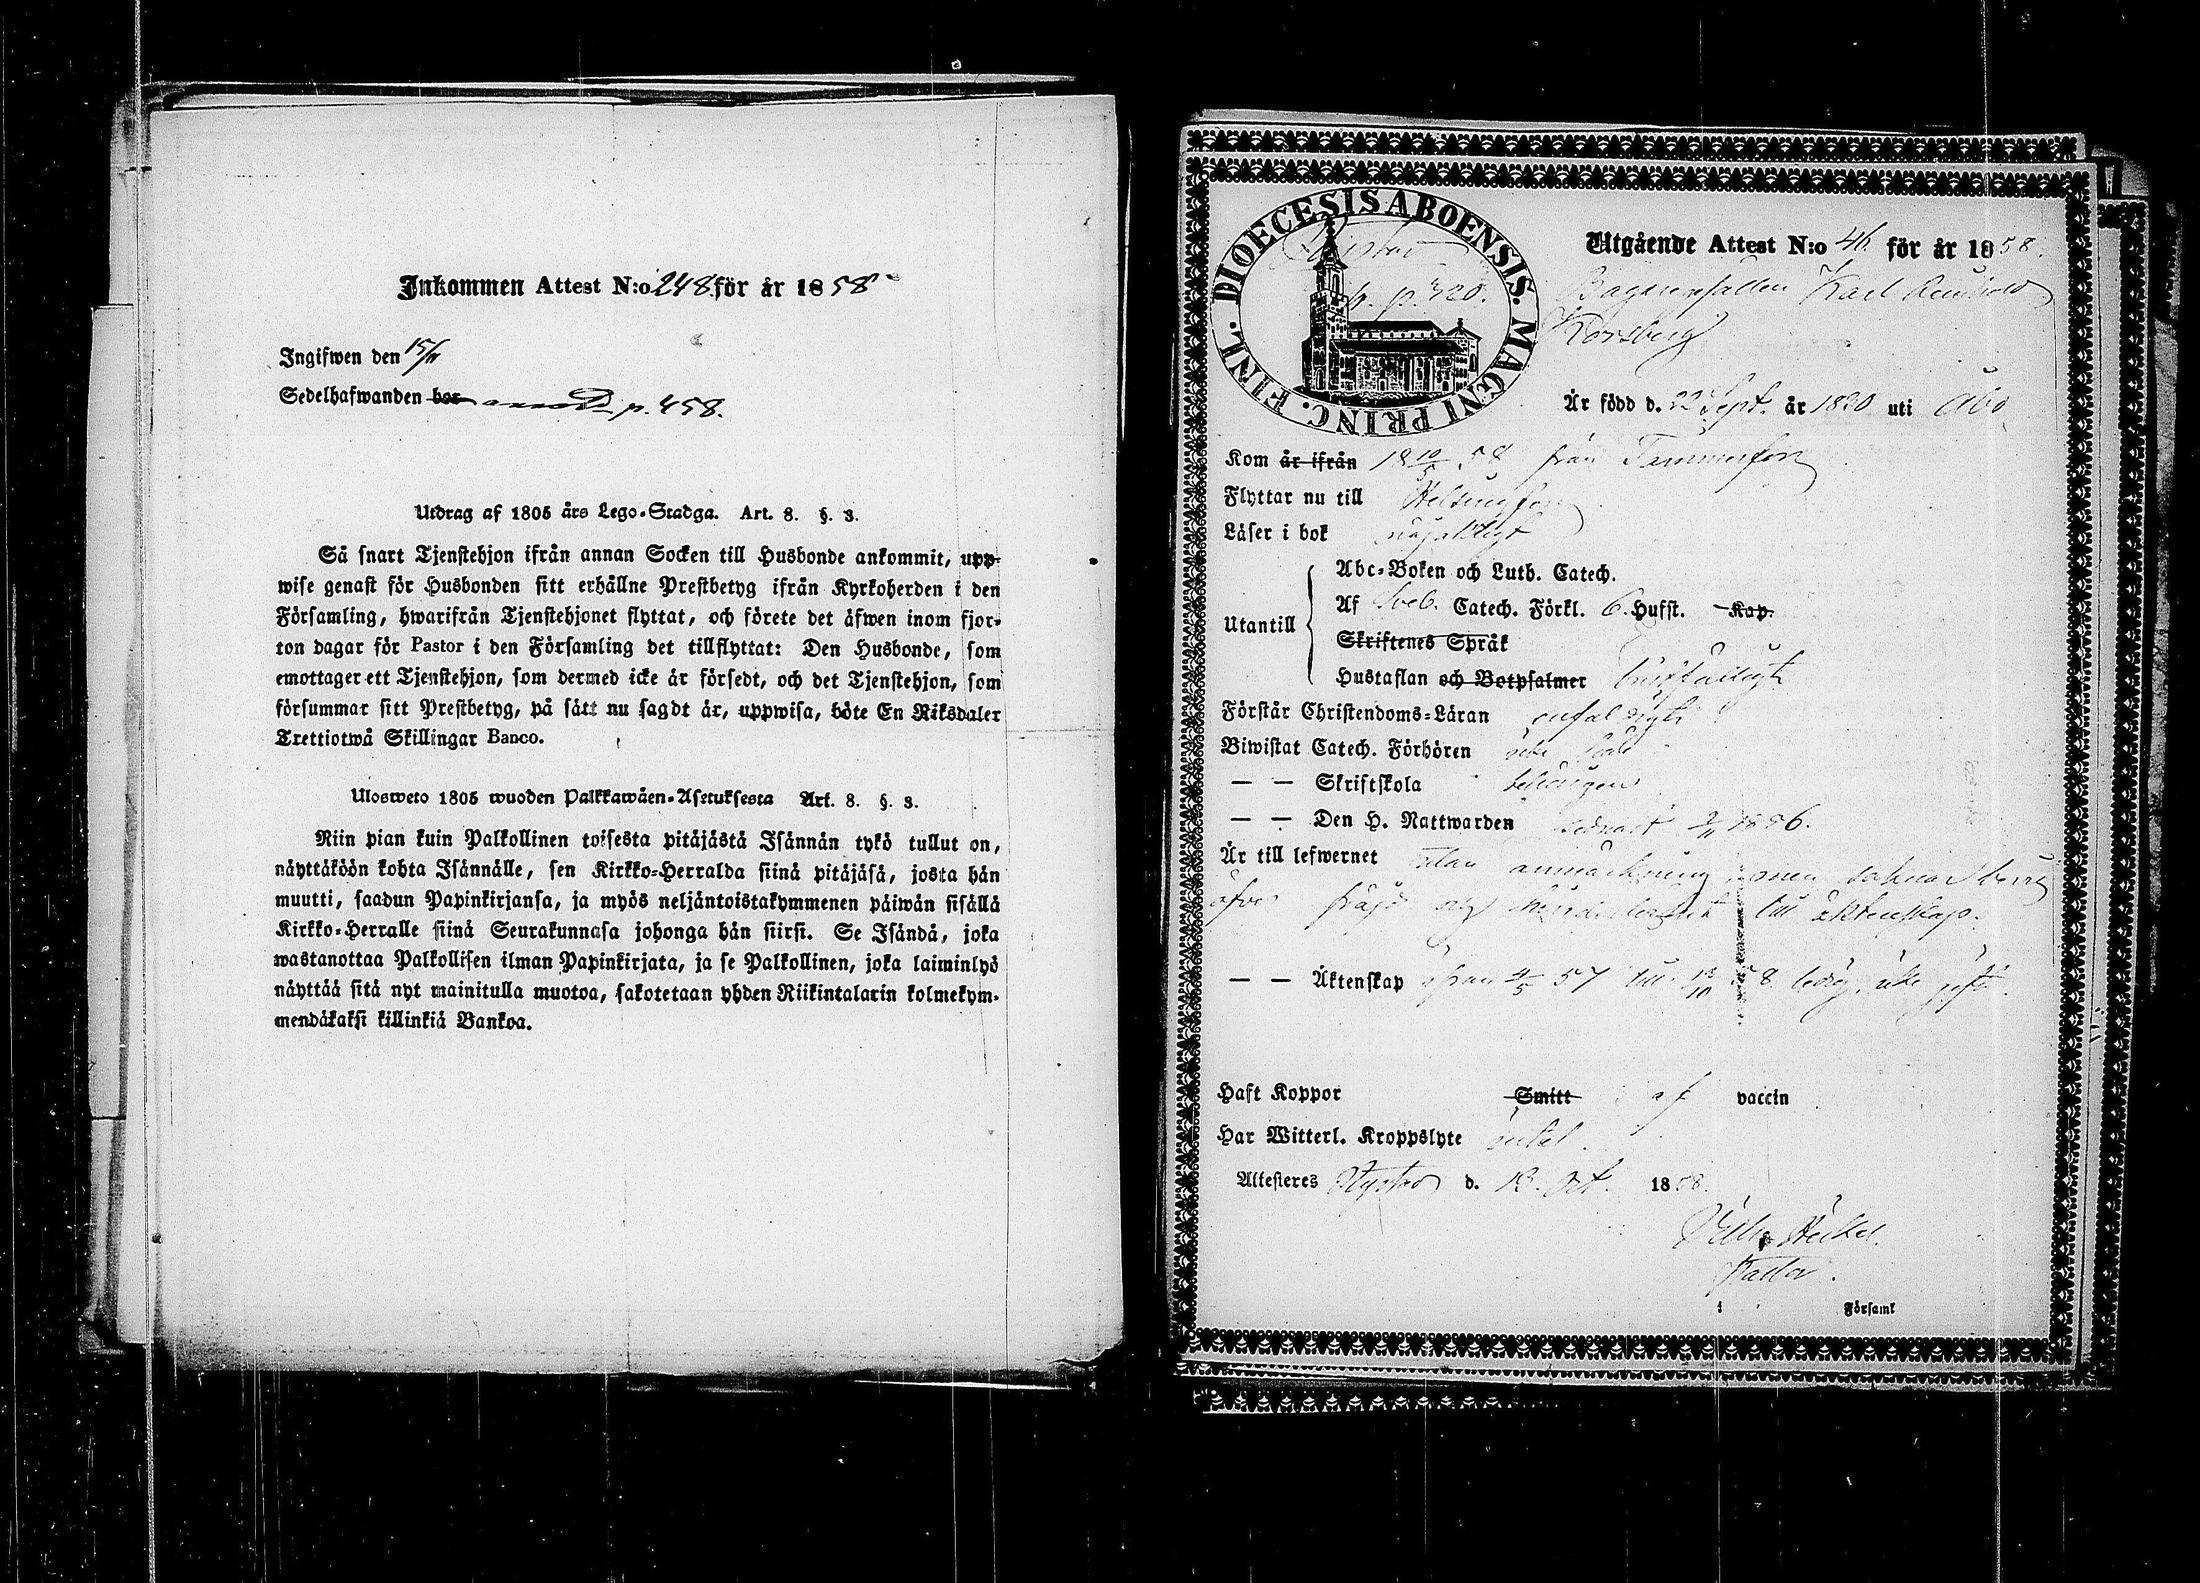 Inkommen Attest N:o 248 för år 1858
Ingifwen den 15/11
Sedelhafwanden bor p. 458.
Utdrag af 1805 års Lego-Stadga. Art. 8. §. 3.
Så snart Tjenstehjon ifrån annan Socken till Husbonde ankommit, upp-
wise genast för Husbonden sitt erhållne Prestbetyg ifrån Kyrkoherden i den
Församling, hwarifrån Tjenstehjonet flyttat, och förete det äfwen inom fjor-
ton dagar för Pastor i den Församling det tillflyttat: Den Husbonde, som
emottager ett Tjenstehjon, som dermed icke är försedt, och det Tjenstehjon, som
försummar sitt Prestbetyg, på sätt nu sagdt är, uppwisa, böte En Riksdaler
Trettiotwå Skillingar Banco.
Ulosweto 1805 wuoden Palkkawäen-Asetuksesta Art. 8. §. 3.
Niin pian kuin Palkollinen toisesta pitäjästä Isännän tykö tullut on,
näyttäköön kohta Isännälle, sen Kirkko-Herralda siinä pitäjäsä, josta hän
muutti, saadun Papinkirjansa, ja myös neljäntoistakymmenen päiwän sisällä
Kirkko-Herralle siinä Seurakunnasa johonga hän siirsi. Se Isändä, joka
wastanottaa Palkollisen ilman Papinkirjata, ja se Palkollinen, joka laiminlyö
näyttää sitä nyt mainitulla muotoa, sakotetaan yhden Riikintalarin kolmekym-
mendäkaksi killinkiä Bankoa.
DIOECESIS ABOENSIS. MAGNI PRINC. FINL.
p. 320.
Utgående Attest N:o 46 för år 1858.
Karl Reinhold
Korsberg
Är född d. 22 Sept. år 1830 uti Åbo
Kom år ifrån 18 10/5 58 från Tammerfors
Flyttar nu till Helsingfors
Läser i bok nöjaktligt
Abc-Boken och Luth. Catech.
Utantill Af Sveb. Catech. Förkl. 6. Hufst. Kap.
Skriftenes Språk
Hustaflan och Botpsalmer
Förstår Christendoms-Läran enfaldigt
Biwistat Catech. Förhören
— — Skriftskola behörigen
— — Den H. Nattwarden senast 2/11 1856.
Är till lefwernet utan anmärkning, men saknar betyg
öfver frejd och hinderlöshet till äktenskap.
— — Äktenskap ifrån 4/5 57 till 13/10 58 ledig, icke gift.
Haft Koppor Smitt af vaccin
Har Witterl. Kroppslyte
Attesteres Nystad d. 13. Oct. 1858.
Pastor.
i Församl